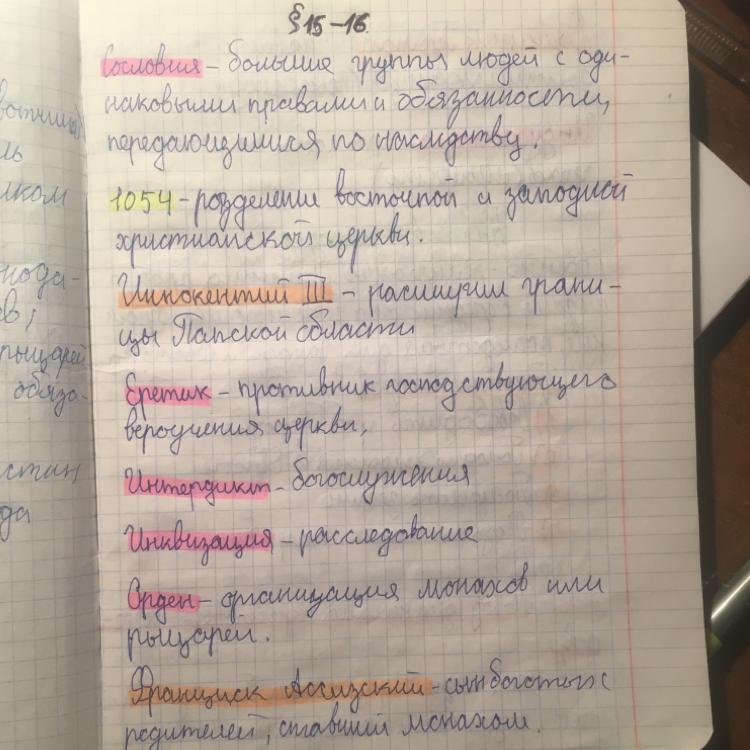 §15-16
Сословия - большие группы людей с оди-
наковыми правами и обязанности,
передающимися по наследству.
1054 - розделении восточной и заподной
христианской церкви.
Иннокентий III - расширил грани-
цы Папской области
Еретик - противник господствующего
вероучения церкви,
Интердикт - богослужения
Инквизация - расследование
Орден - организация монахов или
рыцарей.
Франциск Ассизский - сын богатых
родителей, ставший монахом.
ль
лком
нода-
в,
рыцарей
обяза-
стин
да